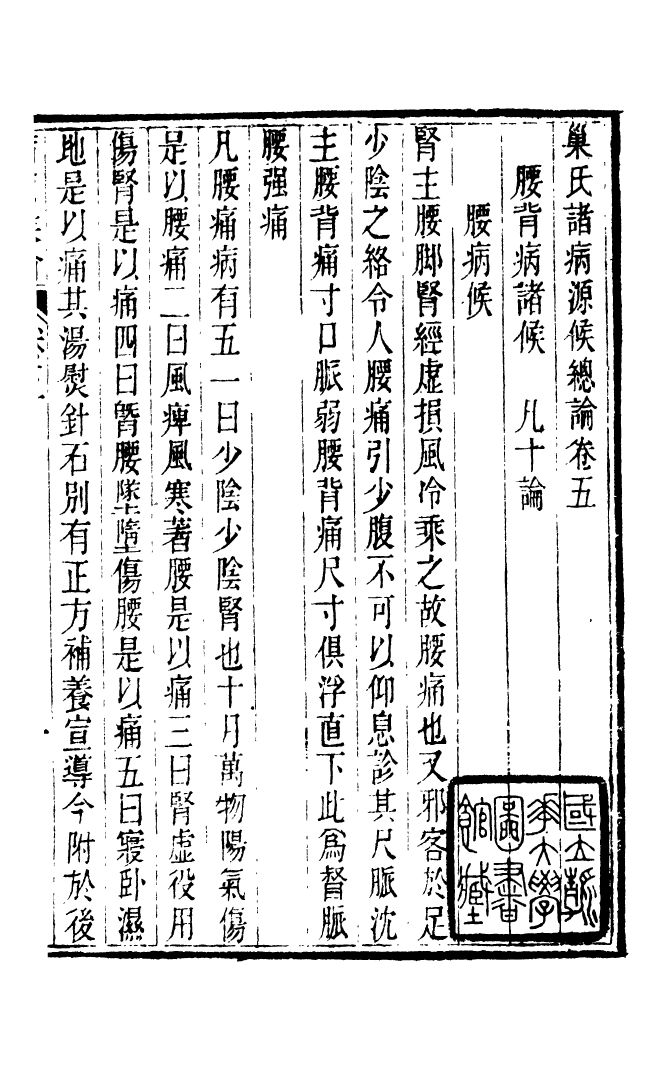 巢氏諸病源候總論卷五
腰背病諸候 凡十論
腰病候
腎主腰脚腎經虛損風冷乘之故腰痛也又邪客於足
少陰之絡令人腰痛引少腹不可以仰息診其尺脈沈
主腰背痛寸口脈弱腰背痛尺寸俱浮直下此為督脈
腰强痛
凡腰痛病有五一曰少陰少陰腎也十月萬物陽氣傷
是以腰痛二曰風痺風寒著腰是以痛三曰腎虛役用
傷腎是以痛四曰䐴腰墜墮傷腰是以痛五曰寢卧濕
地是以痛其湯熨針石別有正方補養宣導今附於後
國立淸
華大學
圖書
館藏